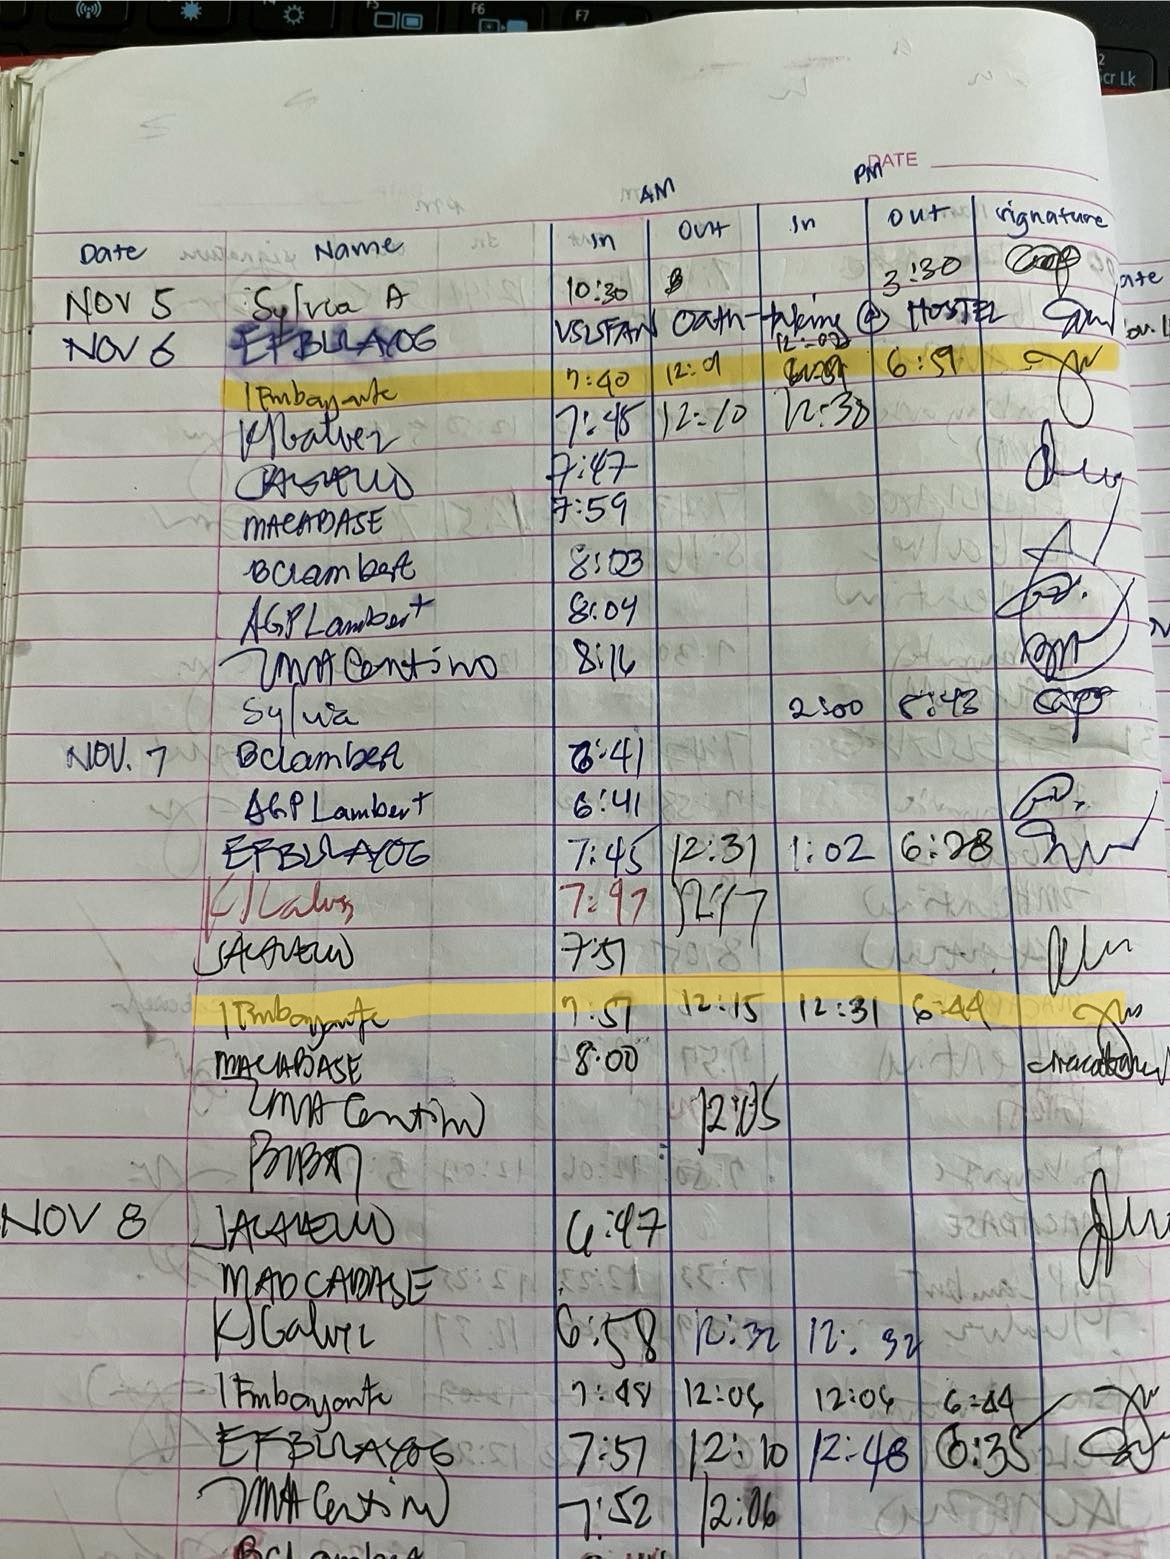 F5
F6
F7
cr Lk
DATE
AM PM
Date Name In Out In Out signature
NOV 5 Sylvia A 10:30 3:30
NOV 6 EFBULAYOG VSUFAN Oath-taking @ HOSTEL
IEmbayarte 7:40 12:01 12:02 6:51
KJGalvez 7:45 12:10 12:30
JACAVELLO 7:47
MACABASE 7:59
BClambert 8:03
AGPLambert 8:04
MACentino 8:16
Sylvia 2:00 5:43
NOV. 7 BClambert 6:41
AGPLambert 6:41
EFBULAYOG 7:45 12:31 1:02 6:28
KJGalvez 7:47 12:17
JACAVELLO 7:51
IEmbayarte 7:51 12:15 12:31 6:44
MACABASE 8:00
MACentino 12:05
NOV 8 JACAVELLO 6:47
MADCABASE
KJGalvez 6:58 12:32 12:32
IEmbayarte 7:48 12:04 12:04 6:44
EFBULAYOG 7:51 12:10 12:48 6:35
MACentino 7:52 12:06
BClambert